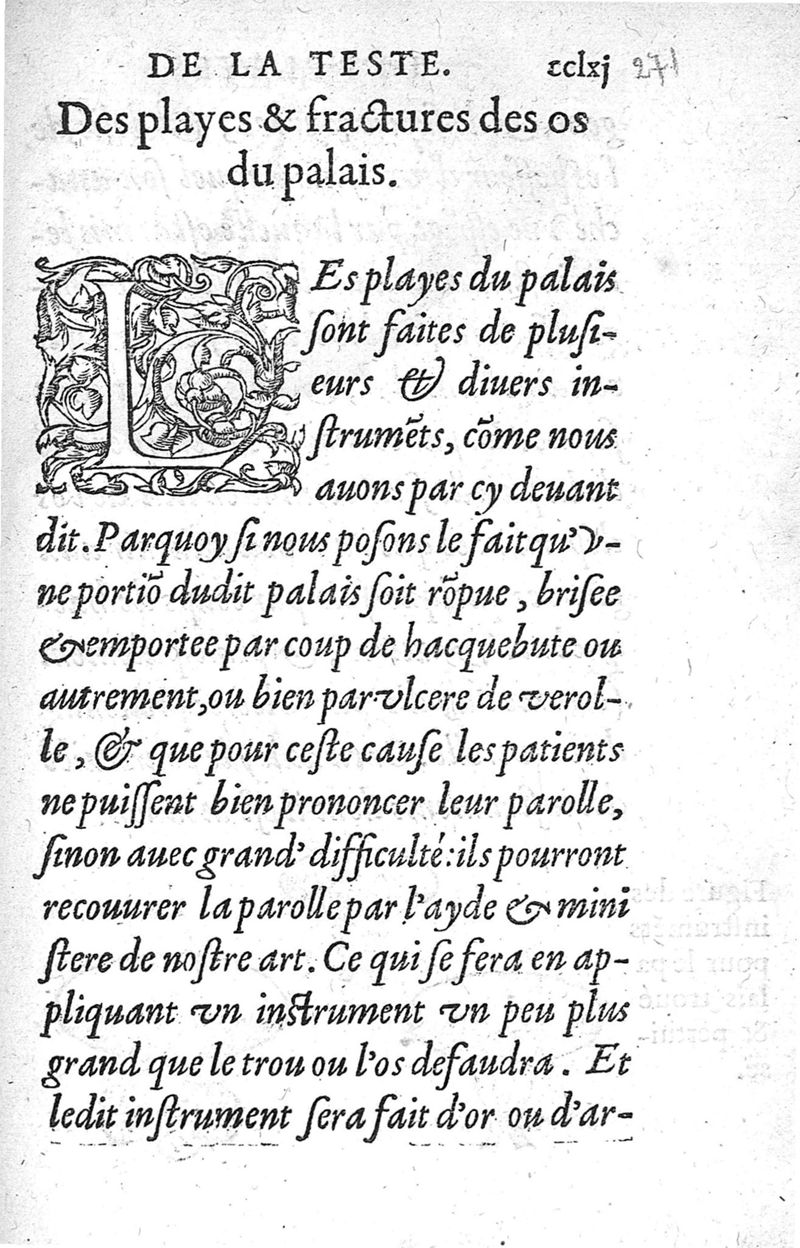 DE LA TESTE. cclxj 271
Des playes & fractures des os
du palais.
LEs playes du palais
ſont faites de pluſi-
eurs & diuers in-
ſtrumẽts, cõme nous
auons par cy deuant
dit. Parquoy ſi nous poſons le fait qu’v-
ne portiõ dudit palais ſoit rõpue, briſee
& emportee par coup de hacquebute ou
autrement, ou bien par vlcere de verol-
le, & que pour ceſte cauſe les patients
ne puiſſent bien prononcer leur parolle,
ſinon auec grand’ difficulté: ils pourront
recouurer la parolle par l’ayde & mini
ſtere de noſtre art. Ce qui ſe fera en ap-
pliquant vn inſtrument vn peu plus
grand que le trou ou l’os defaudra. Et
ledit inſtrument ſera fait d’or ou d’ar-